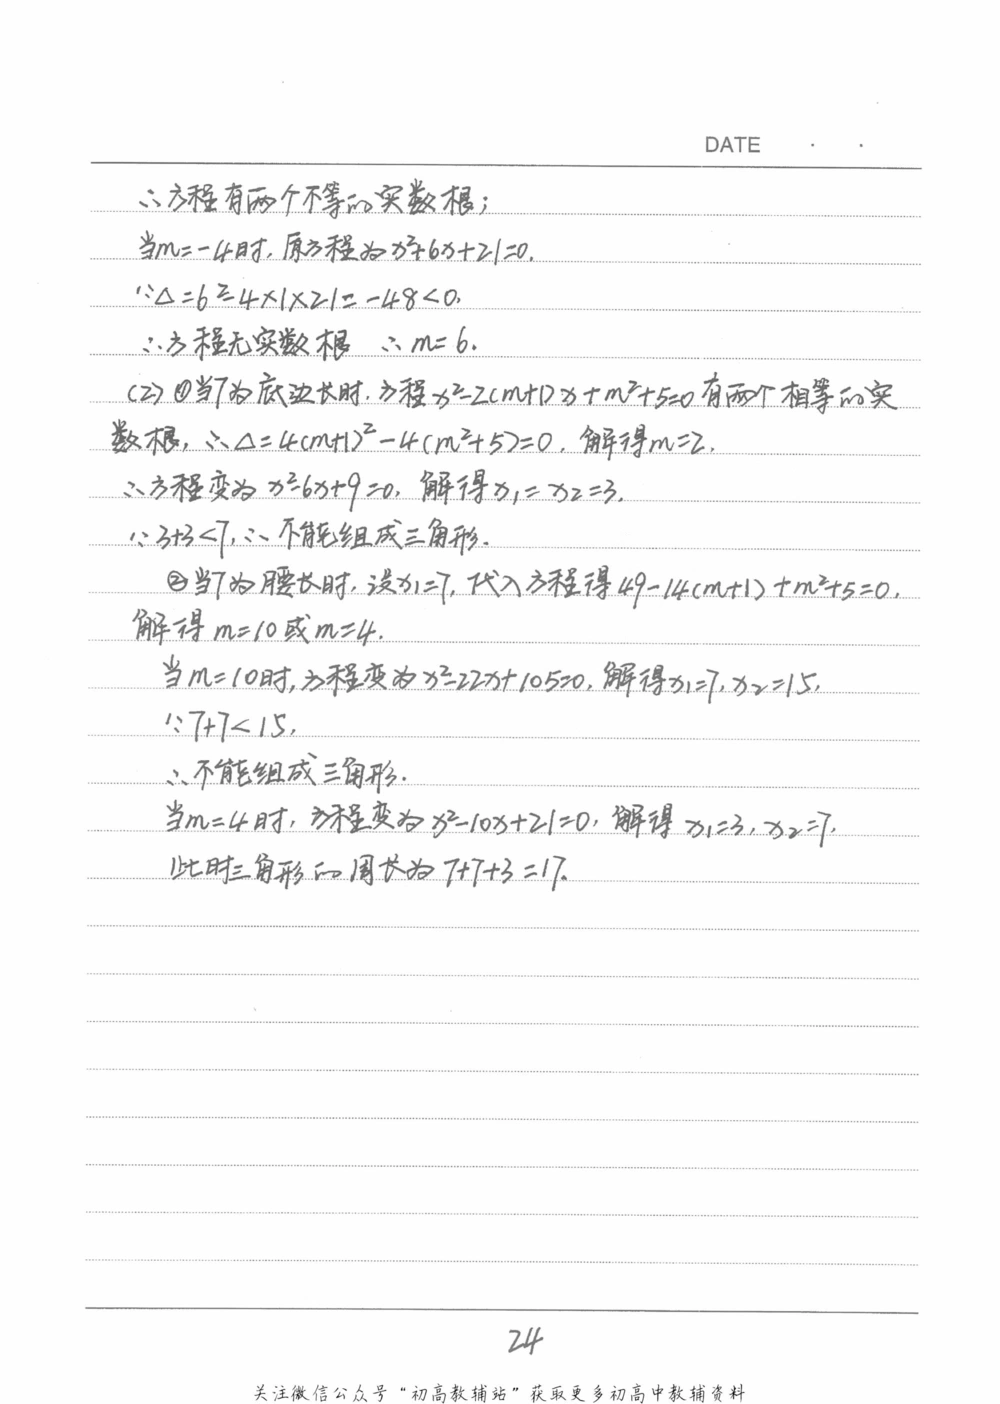 DATE · ·
∴方程有两个不等的实数根；
当m=-4时,原方程为x²+6x+21=0.
∵△=6²-4×1×21=-48<0.
∴方程无实数根 ∴m=6.
(2)①当7为底边长时,方程x²-2(m+1)x+m²+5=0有两个相等的实
数根,∴△=4(m+1)²-4(m²+5)=0,解得m=2.
∴方程变为x²-6x+9=0,解得x₁=x₂=3.
∵3+3<7,∴不能组成三角形.
②当7为腰长时,设x₁=7,代入方程得49-14(m+1)+m²+5=0,
解得m=10或m=4.
当m=10时,方程变为x²-22x+105=0,解得x₁=7,x₂=15,
∵7+7<15,
∴不能组成三角形.
当m=4时,方程变为x²-10x+21=0,解得x₁=3,x₂=7,
此时三角形的周长为7+7+3=17.
24
关注微信公众号“初高教辅站”获取更多初高中教辅资料